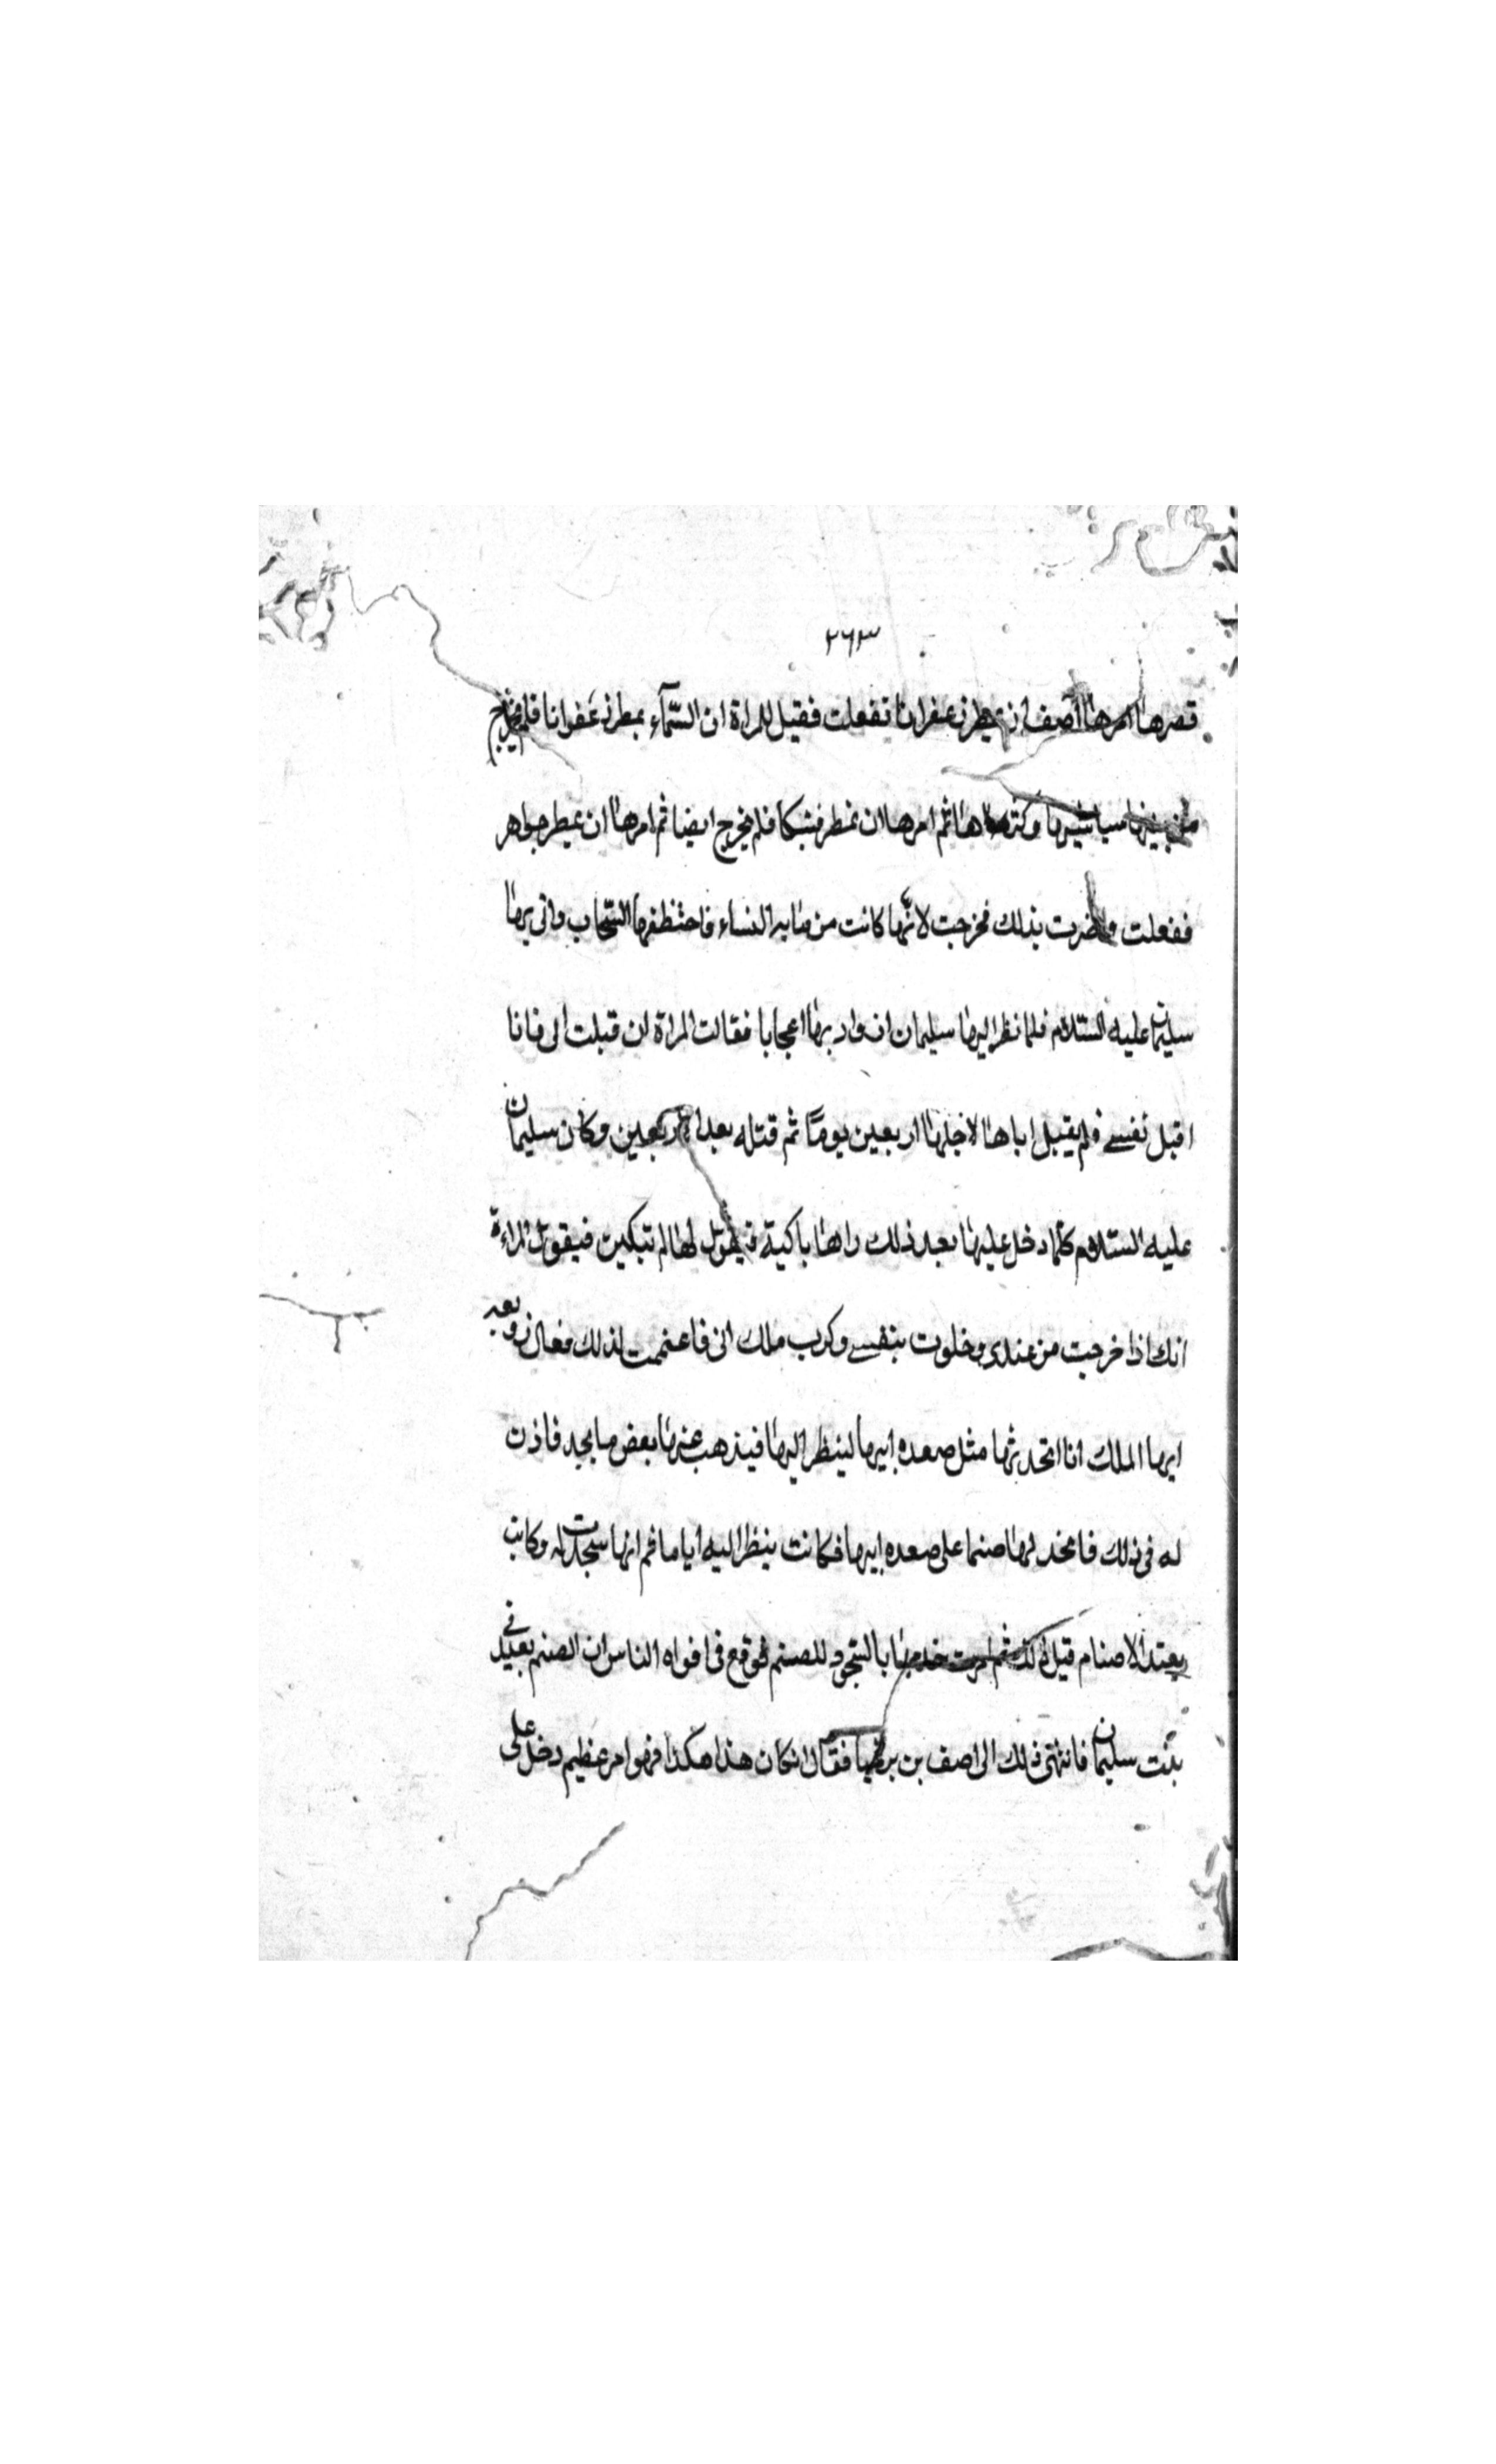 ٢٦٣
قصرها امرها آصف ان يمطر زعفرانا ففعلت فقيل للمراة ان السّمآء يمطر زعفرانا فلم يخرج
من بينها سياستيرها وكثر ثم امرها ان تمطر مشكا فلم يخرج ايضا ثم امرها ان يمطر جواهر
ففعلت بذلك فخرجت لانّها كانت من النساء فاختطفها السّحاب واتى بها
سليمان عليه السّلام فلما نظر اليها سليمان ازداد بها اعجابا فقالت المراة ان قبلت ابى فانا
اقبل نفسى فلم يقبل اباها لاجلها اربعين يومًا ثم قتله بعد اربعين وكان سليمان
عليه السّلام كلّما دخل عليها بعد ذلك راها باكية فيقول لها لم تبكين فيقول المراة
انك اذا خرجت من عندى وخلوت بنفسى وكرب ملك ابى فاغتممت لذلك فقال زوبعه
ايها الملك انا اتخد مثل صعده ابيها لينظر اليها فيذهب عنها بعض ما يجد فاذن
له فى ذلك فاتخد لها صنما على صعده ابيها فكانت ينظر اليه اياما ثم انها سجدت له وكانت
يعتد الاصنام قبل ذلك ثم امرت خدمها بالسّجود للصنم فوقع فى افواه الناس ان الصنم يعبد فى
بيت سليمان فانتهى ذلك الى اصف بن برخيا فقال ان كان هذا هكذا فهو امر عظيم دخل على